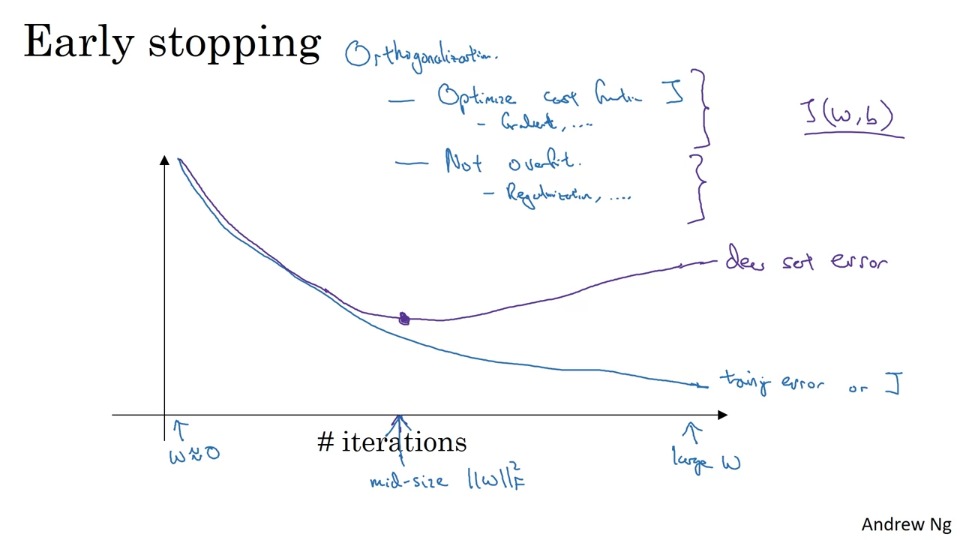 Early stopping
Orthogonalization.
— Optimize cost function J
- Gradient, ....
J(w,b)
— Not overfit.
- Regularization, ....
dev set error
training error or J
# iterations
w≈0
mid-size ||w||²_F
large w
Andrew Ng